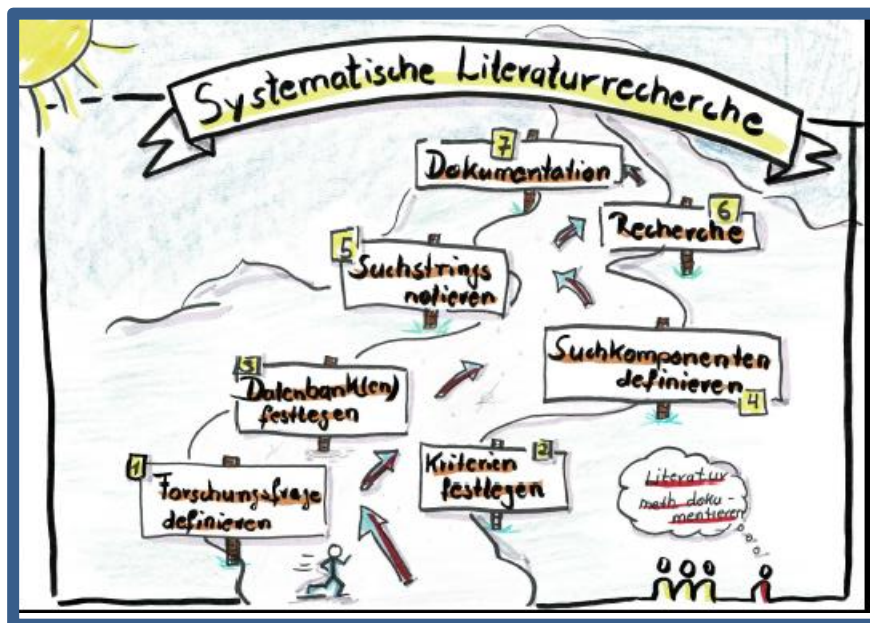 Systematische Literaturrecherche
7
Dokumentation
6
Recherche
5
Suchstrings
notieren
Suchkomponenten
definieren
4
3
Datenbank(en)
festlegen
2
Kriterien
festlegen
1
Forschungsfrage
definieren
Literatur
doku-
mentieren